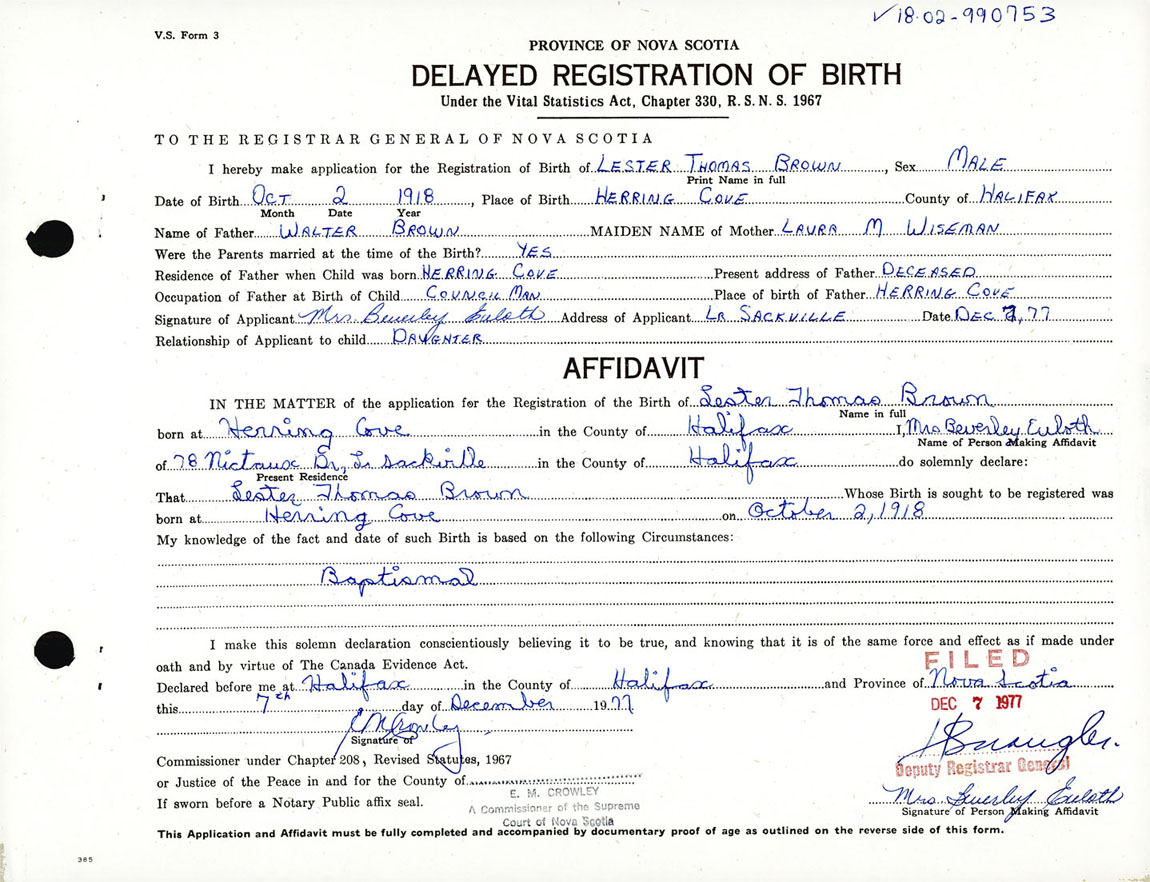 ✓18-02-990753
V.S. Form 3
PROVINCE OF NOVA SCOTIA
DELAYED REGISTRATION OF BIRTH
Under the Vital Statistics Act, Chapter 330, R. S. N. S. 1967
TO THE REGISTRAR GENERAL OF NOVA SCOTIA
I hereby make application for the Registration of Birth of LESTER THOMAS BROWN, Sex MALE
Print Name in full
Date of Birth OCT 2 1918, Place of Birth HERRING COVE County of HALIFAX
Month Date Year
Name of Father WALTER BROWN MAIDEN NAME of Mother LAURA M WISEMAN
Were the Parents married at the time of the Birth? YES
Residence of Father when Child was born HERRING COVE Present address of Father DECEASED
Occupation of Father at Birth of Child COUNCIL MAN Place of birth of Father HERRING COVE
Signature of Applicant Mrs. Beverley Euloth Address of Applicant LR SACKVILLE Date DEC 7, 77
Relationship of Applicant to child DAUGHTER
AFFIDAVIT
IN THE MATTER of the application for the Registration of the Birth of Lester Thomas Brown
Name in full
born at Herring Cove in the County of Halifax I, Mrs Beverley Euloth
Name of Person Making Affidavit
of 78 Nictaux Dr, Lr Sackville in the County of Halifax do solemnly declare:
Present Residence
That Lester Thomas Brown Whose Birth is sought to be registered was
born at Herring Cove on October 2, 1918
My knowledge of the fact and date of such Birth is based on the following Circumstances:
Baptismal
I make this solemn declaration conscientiously believing it to be true, and knowing that it is of the same force and effect as if made under
oath and by virtue of The Canada Evidence Act.
FILED
Declared before me at Halifax in the County of Halifax and Province of Nova Scotia
this 7th day of December 1977
DEC 7 1977
E M Crowley
Signature of
Commissioner under Chapter 208, Revised Statutes, 1967
Deputy Registrar General
or Justice of the Peace in and for the County of
E. M. CROWLEY
If sworn before a Notary Public affix seal.
A Commissioner of the Supreme
Court of Nova Scotia
Mrs Beverley Euloth
Signature of Person Making Affidavit
This Application and Affidavit must be fully completed and accompanied by documentary proof of age as outlined on the reverse side of this form.
385